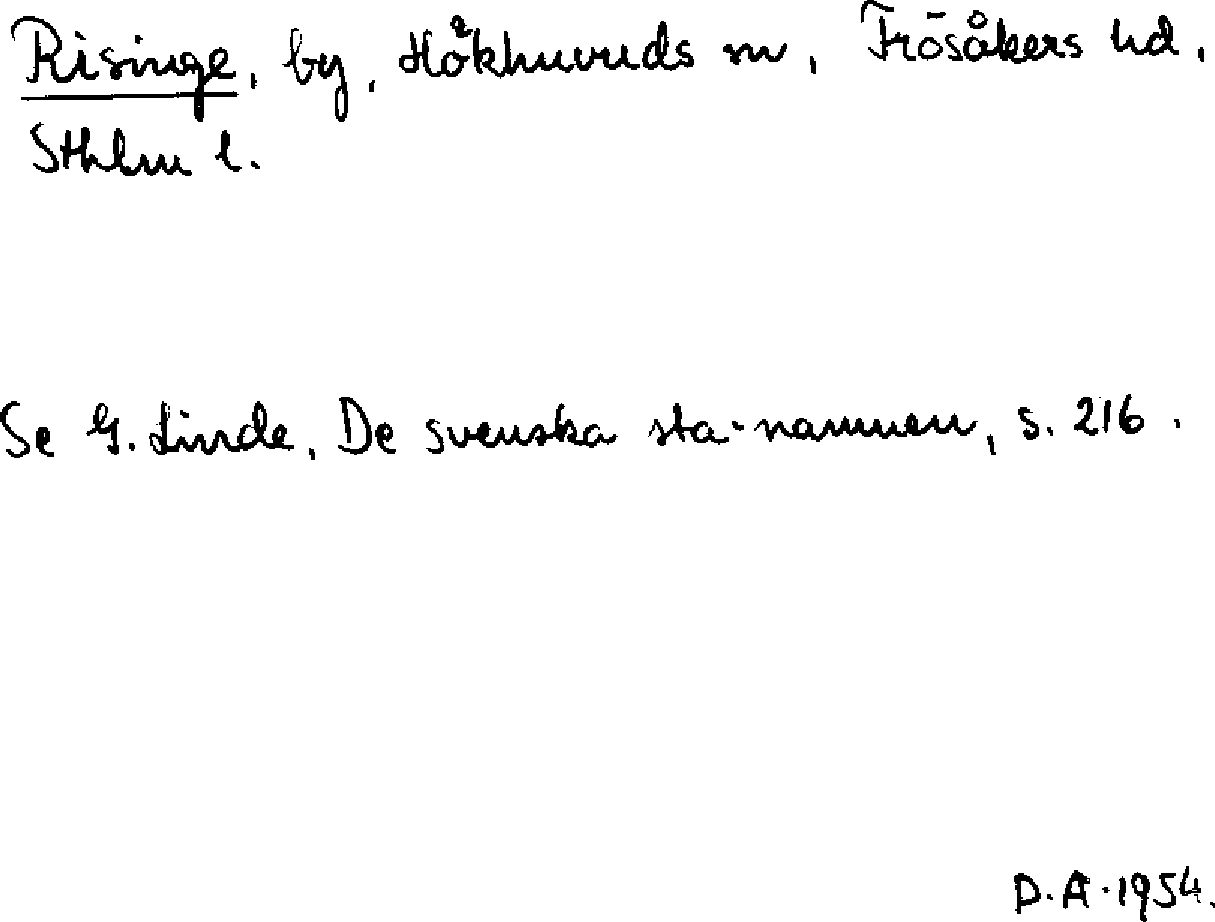 Risinge, by, Hökhuvuds sn, Frösåkers hd,
Sthlm l.
Se G. Linde, De svenska sta-namnen, s. 216.
D.A. 1954.